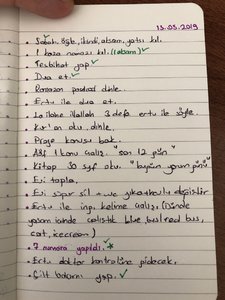 13.05.2019
• Sabah, öğle, ikindi, akşam, yatsı kıl.
• 1 kaza namazı kıl. (sabah) ✓
• Tesbihat yap ✓
• Dua et. ✓
• Ramazan dinle.
• Ertu ile dua et.
• La ilahe illallah 3 defa ertu ile söyle.
• Kur'an oku, dinle.
• Proje konusu bak.
• 1 konu çalış. "son 12 gün"
• Kitap 30 syf oku. "bugün yarım günü"
• Evi topla.
• Evi süpür sil + ve yıkat
• Ertu ile ing. kelime çalış. (Günde
yarım saat çalıştık blue bus, red bus,
cat, icecream)
• 7 numara yapıldı. ✓*
• Ertu doktor kontrolüne gidecek.
• Cilt bakımı yap. ✓